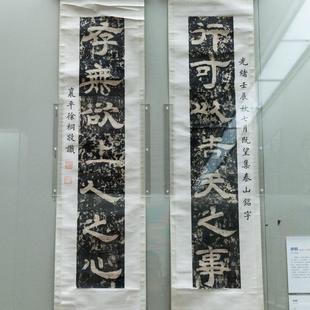 光緒壬辰秋七月既望集泰山銘字
行可以告天之事
存無欲上人之心
襄平徐桐敬識